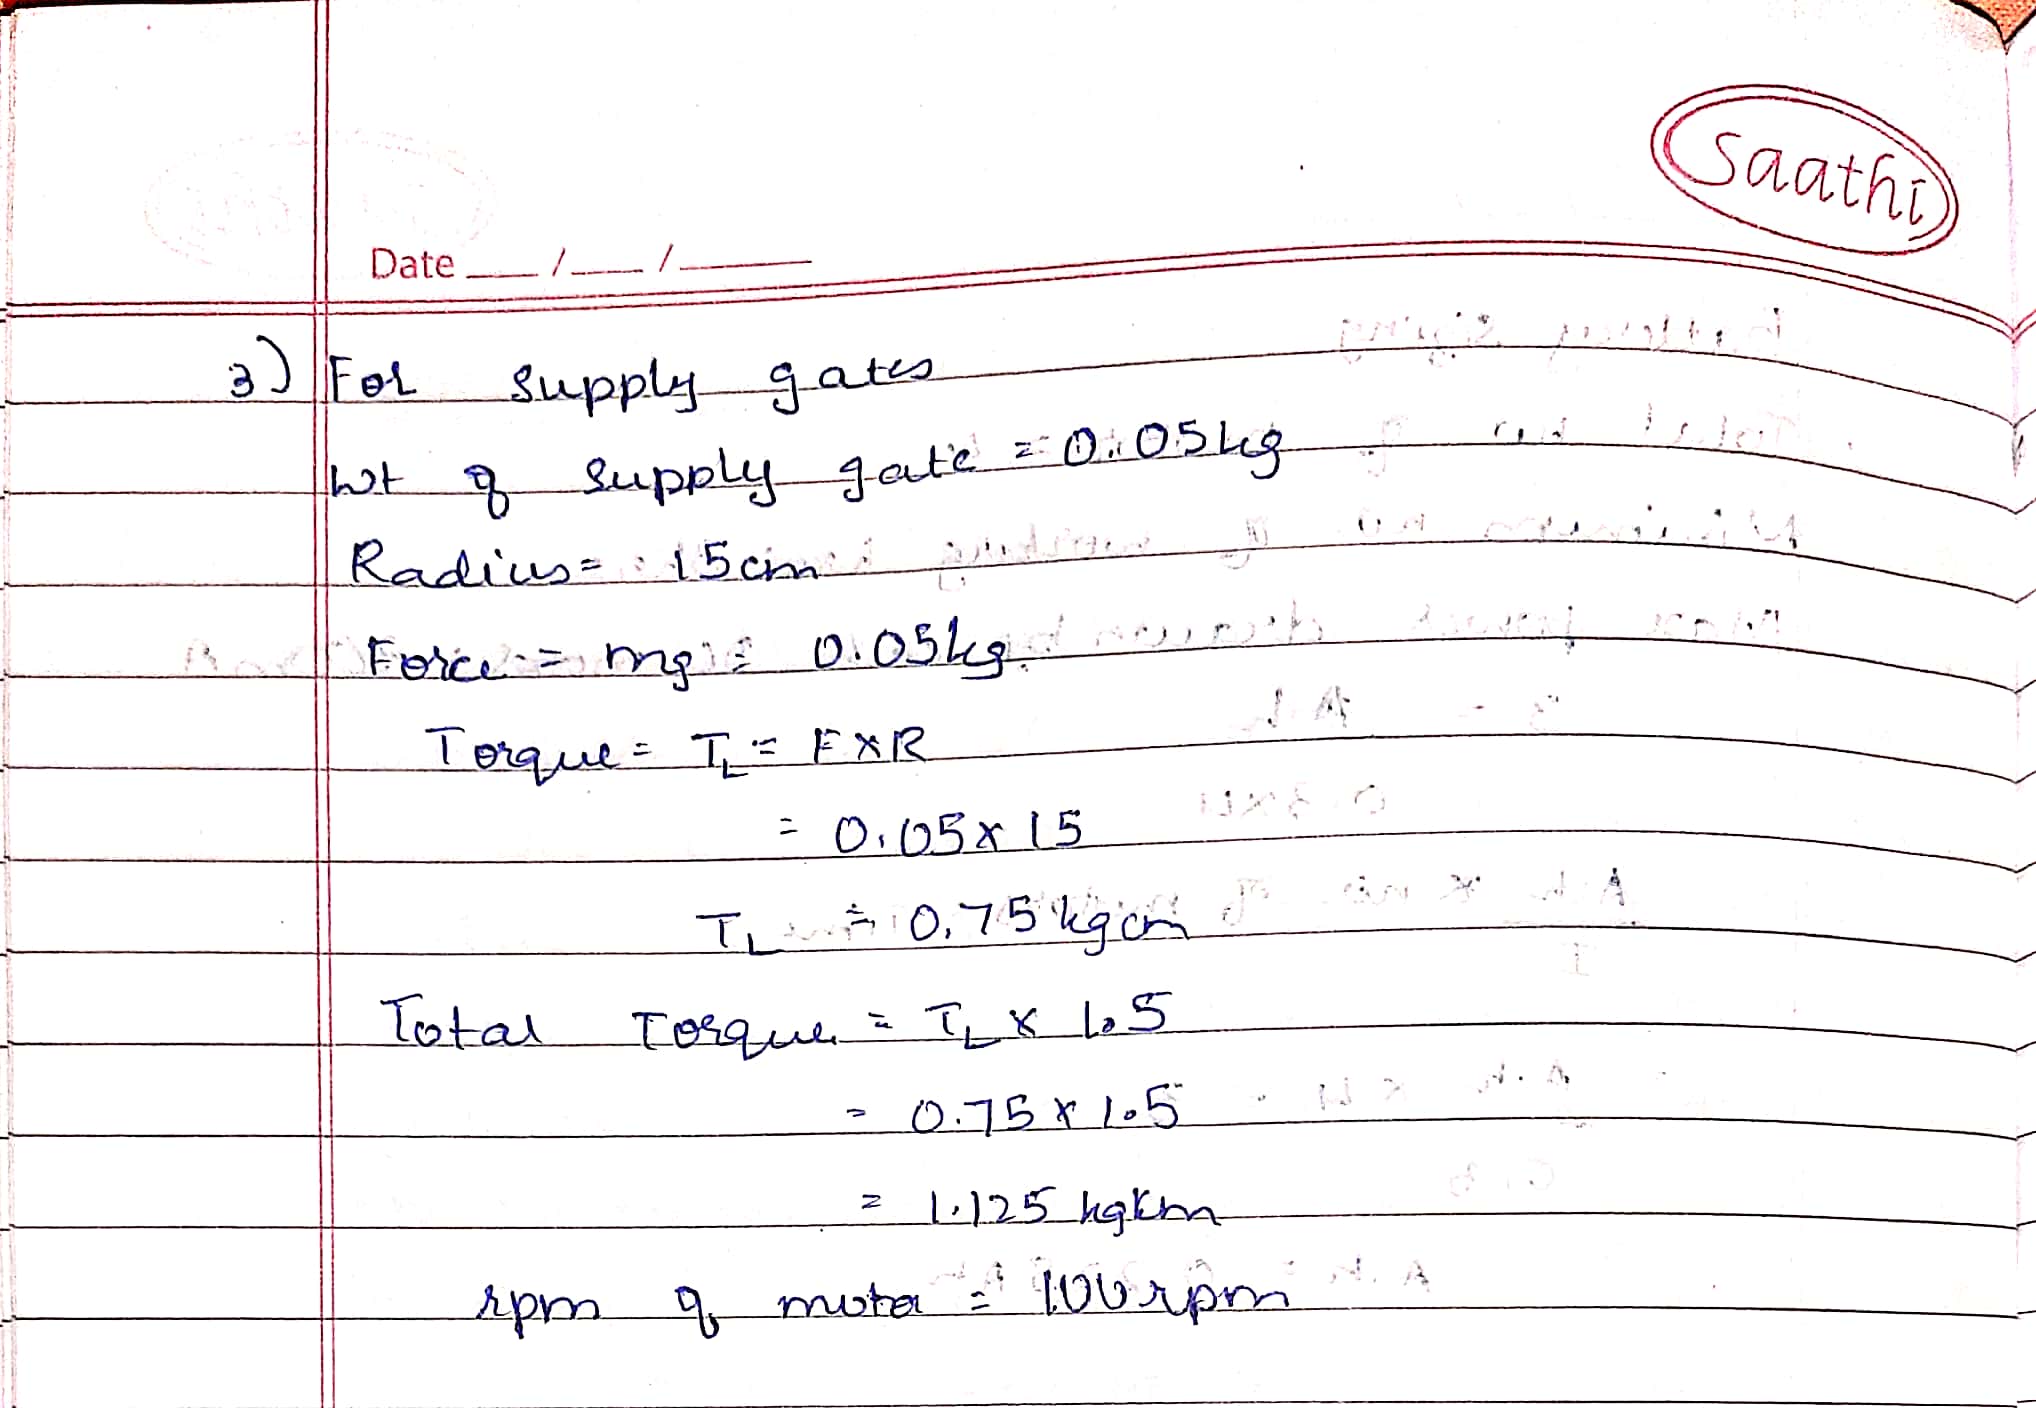 Saathi
Date __/__/____
3) For supply gates
Wt of supply gate = 0.05kg
Radius = 15cm
Force = mg = 0.05kg.
Torque = TL = F×R
= 0.05×15
TL = 0.75 kgcm
Total Torque = TL × 1.5
= 0.75 × 1.5
= 1.125 kgkm
rpm of motor = 100rpm